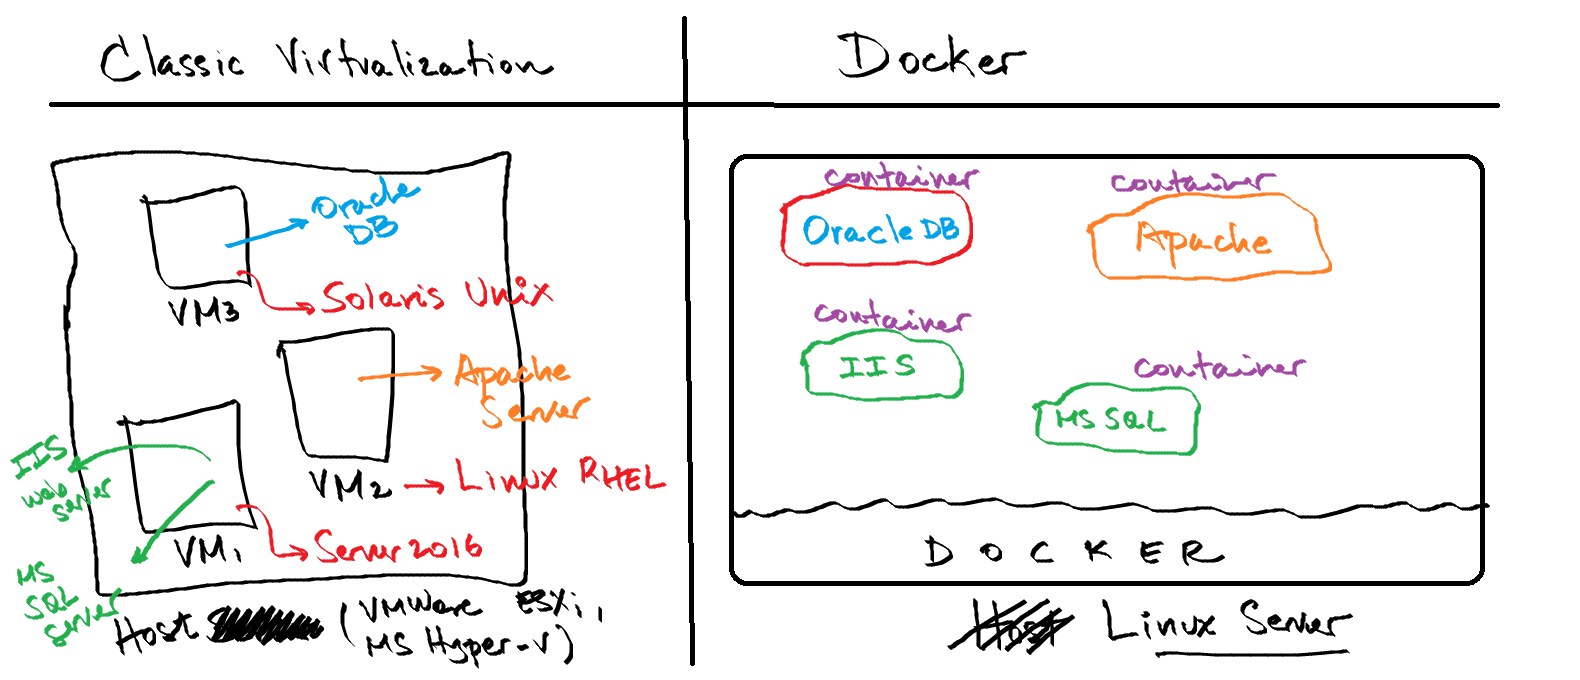 Classic Virtualization
Oracle
DB
VM3
Solaris Unix
Apache
Server
VM2
Linux RHEL
IIS
web
server
VM1
Server 2016
MS
SQL
server
Host (VMWare ESXi,
MS Hyper-V)
Docker
container
Oracle DB
container
Apache
container
IIS
container
MS SQL
DOCKER
Host Linux Server